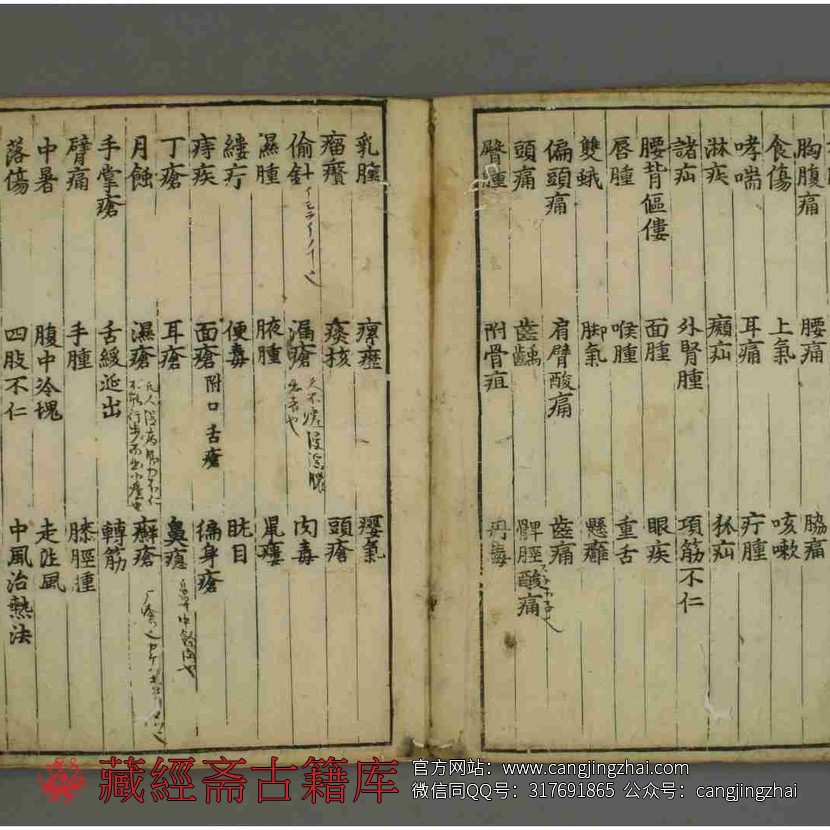 胸腹痛
腰痛
脇痛
食傷
上氣
咳嗽
哮喘
耳痛
疔腫
淋疾
癩疝
狐疝
諸疝
外腎腫
項筋不仁
腰背傴僂
面腫
眼疾
唇腫
喉腫
重舌
雙蛾
脚氣
懸癰
偏頭痛
肩臂酸痛
齒痛
頭痛
齒齲
髀脛酸痛
臂腫
附骨疽
丹毒
乳腫
瘰癧
癭氣
瘤癭
痰核
頭瘡
偷針
漏瘡
肉毒
濕腫
腋腫
鼠瘻
縷疔
便毒
眈目
痔疾
面瘡 附口舌瘡
徧身瘡
丁瘡
耳瘡
鼻瘡
月蝕
濕瘡
癬瘡
手掌瘡
舌緩涎出
轉筋
臂痛
手腫
膝脛腫
中暑
腹中冷塊
走注風
落傷
四肢不仁
中風治熱法
藏經斋古籍库
官方网站：www.cangjingzhai.com
微信同QQ号：317691865 公众号：cangjingzhai